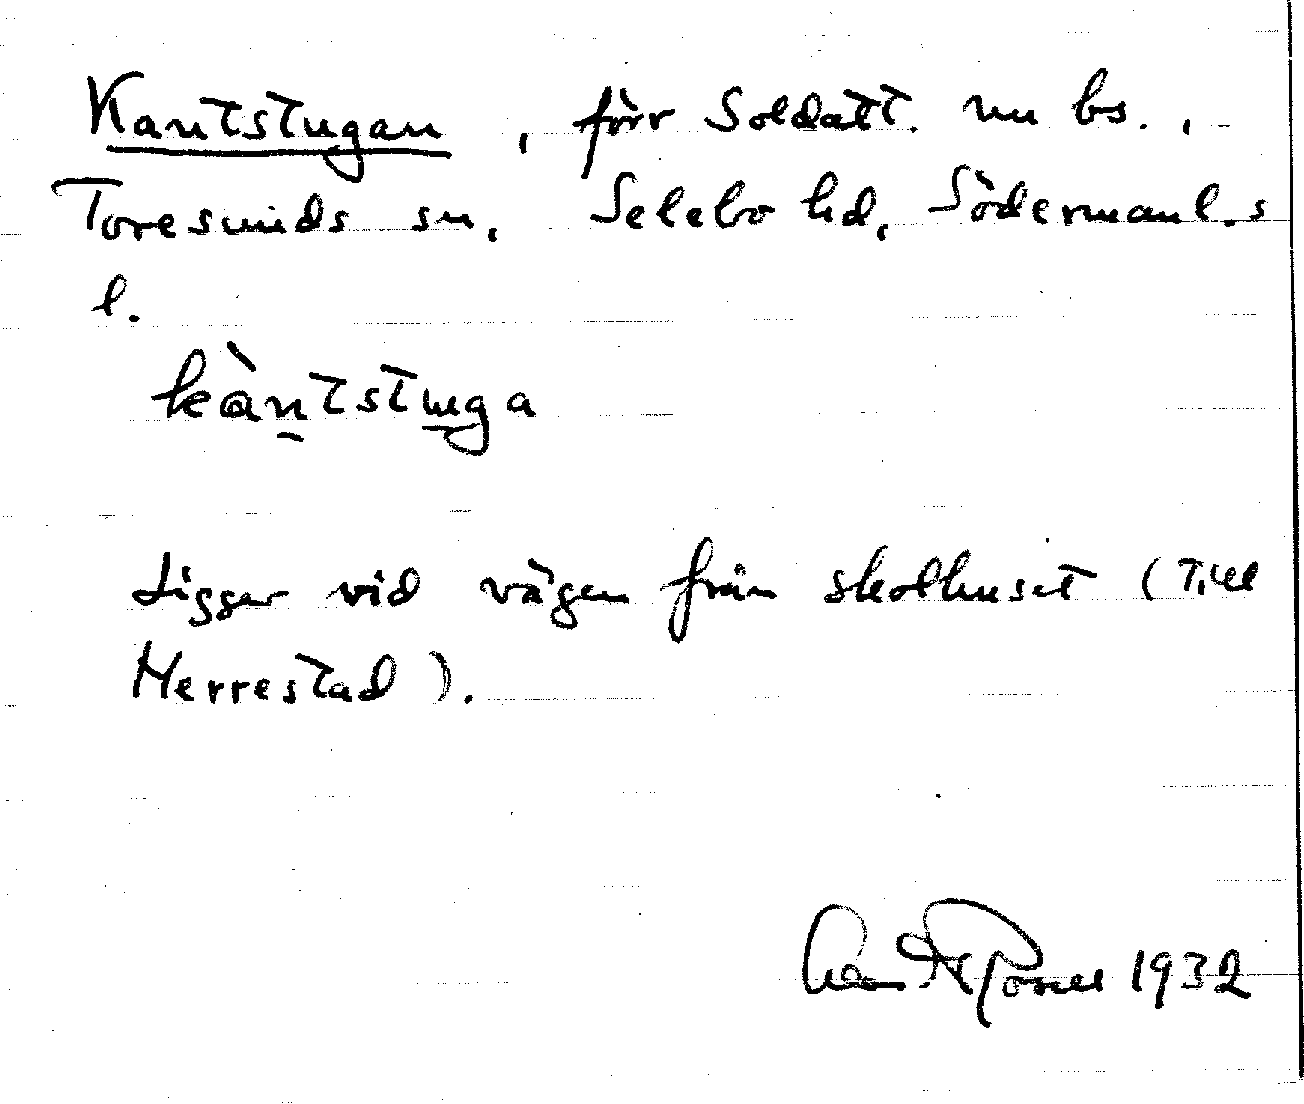 Kantstugan, förr Soldatt. nu bs.,
Toresunds sn, Selebo hd, Södermanl.s
l.
kàntstuga
Ligger vid vägen från skolhuset (till
Herrestad).
1932